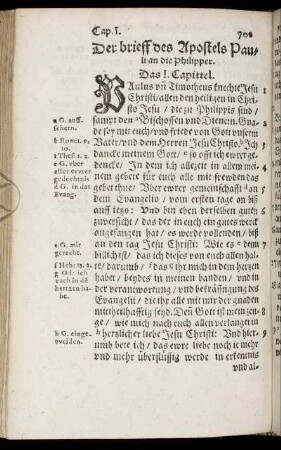 Cap. I.
Der brieff des Apostels Pau-
li an die Philipper.
Das I. Capittel.
PAulus vn̄ Timotheus knechte Jesu
Christi / allen den heiligen in Chri-
sto Jesu / die zu Philippis sind /
sampt den a Bischoffen vnd Dienern. Gna-
de sey mit euch / vnd friede von Gott vnserm
Vater / vnd dem Herren Jesu Christo. b Jch
dancke meinem Gott / c so offt ich ewer ge-
dencke / Jn dem ich allezeit in allem mi-
nem gebete für euch alle mit frewden das
gebet thue / Vber ewrer gemeinschafft d an
dem Evangelio / vom ersten tage an biß
auff itzo: Vnd bin eben derselben gutin
zuversicht / das der in euch ein gutes werck
angefangen hat / es werde vollenden / biß
an den tag Jesu Christi: Wie es e denn
billich ist / das ich dieses von euch allen hal-
te / darumb / f das g ihr mich in dem hertzen
habet / beydes in meinen banden / vnd in
der verantwortung / vnd bekräfftigung des
Evangelii / die ihr alle mit mir der gnaden
mittheilhafftig seyd. Deñ Gott ist mein zeu-
ge / wie mich nach euch allen verlanget in
h hertzlicher liebe Jesu Christi: Vnd hier-
umb bete ich / das ewre liebe noch je mehr
vnd mehr überflüssig werde in erkentnis
vnd al-
a G. auff-
sehern.
b Rom. 1.
10.
1 Thess. 1. 2.
c G. vber
aller ewrer
gedechtnis
d G. in das
Evang.
e G. mir
gerecht.
g Od: ich
euch in dē
hertzen ha-
be.
h G. einge-
weiden.
2
3
4
5
6
7
8
9